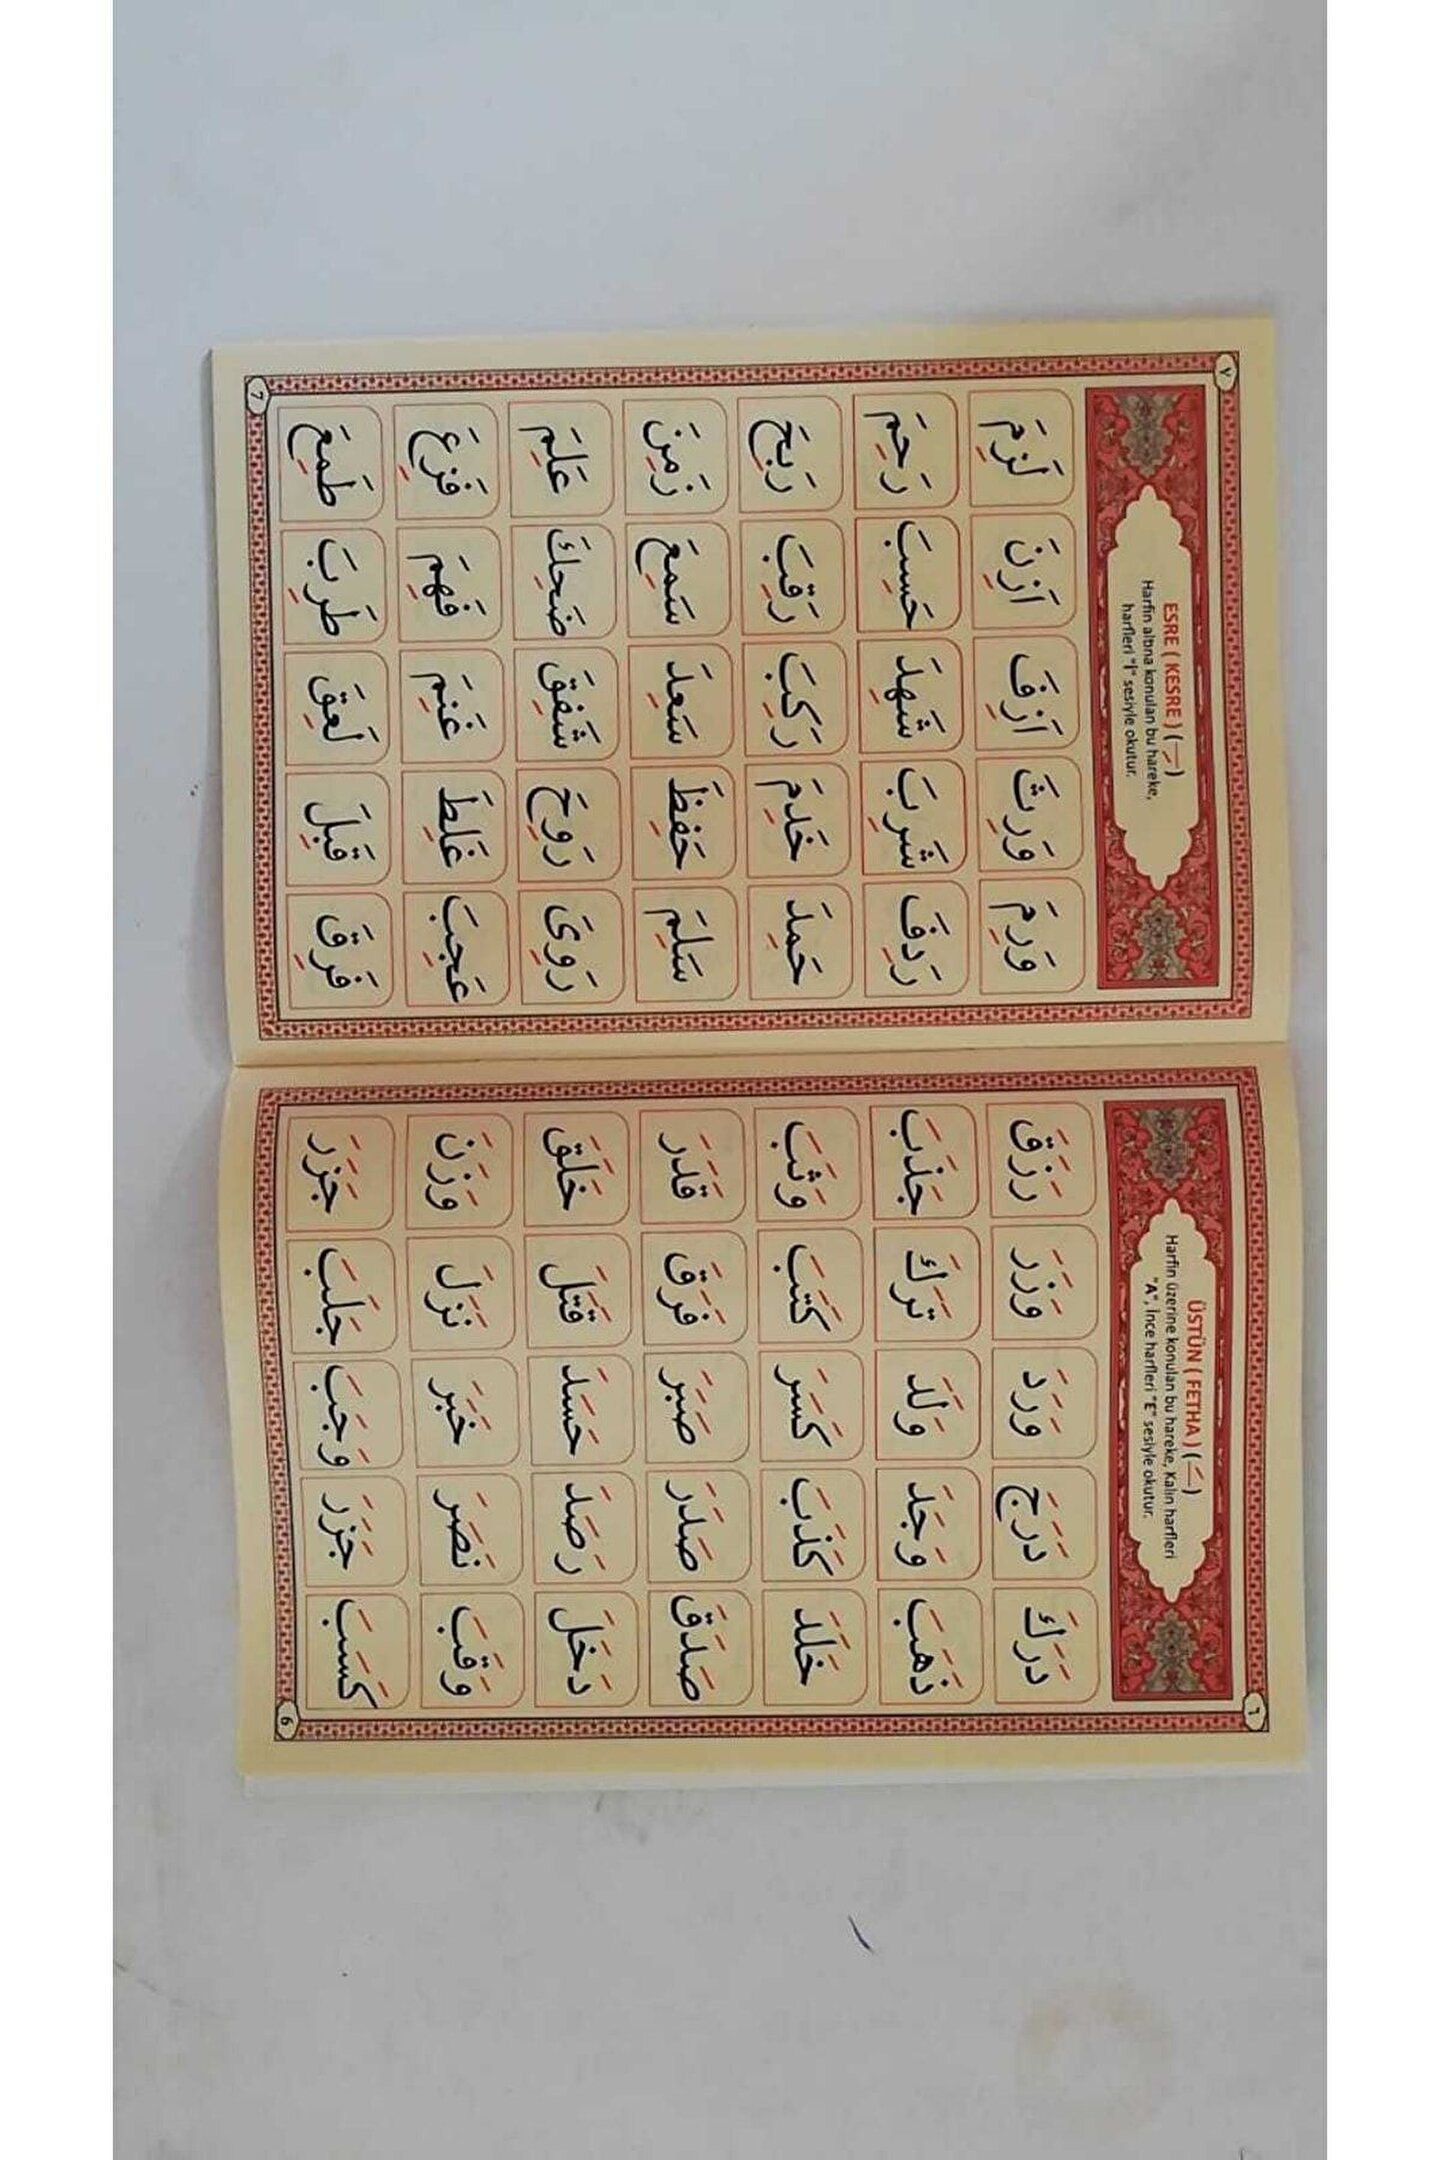 ٦
ÜSTÜN ( FETHA ) ( َ )
Harfin üzerine konulan bu hareke, Kalın harfleri
"A", İnce harfleri "E" sesiyle okutur.
دَرَكَ دَرَجَ وَرَدَ وَزَرَ رَزَقَ
ذَهَبَ وَجَدَ وَلَدَ تَرَكَ جَذَبَ
خَلَدَ كَذَبَ كَسَرَ كَتَبَ وَثَبَ
صَدَقَ صَدَرَ صَبَرَ فَرَقَ قَدَرَ
دَخَلَ رَصَدَ حَسَدَ قَتَلَ خَلَقَ
وَقَبَ نَصَرَ خَبَرَ نَزَلَ وَزَنَ
كَسَبَ جَزَرَ وَجَبَ جَلَبَ جَزَرَ
6
٧
ESRE ( KESRE ) ( ِ )
Harfin altına konulan bu hareke,
harfleri "İ" sesiyle okutur.
وَرِمَ وَرِثَ اَزِفَ اَزِنَ لَزِمَ
رَدِفَ شَرِبَ شَهِدَ حَسِبَ رَحِمَ
حَمِدَ خَدِمَ رَكِبَ رَقِبَ رَبِحَ
سَلِمَ حَفِظَ سَعِدَ سَمِعَ زَمِنَ
رَوِىَ رَوِحَ شَفِقَ ضَحِكَ عَلِمَ
عَجِبَ غَلِطَ غَنِمَ فَهِمَ فَزِعَ
فَرِقَ قَبِلَ لَعِقَ طَرِبَ طَمِعَ
7